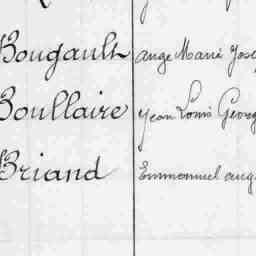 Bougault Ange Marie Jose
Boullaire Jean Louis Georg
Briand Emmanuel Aug